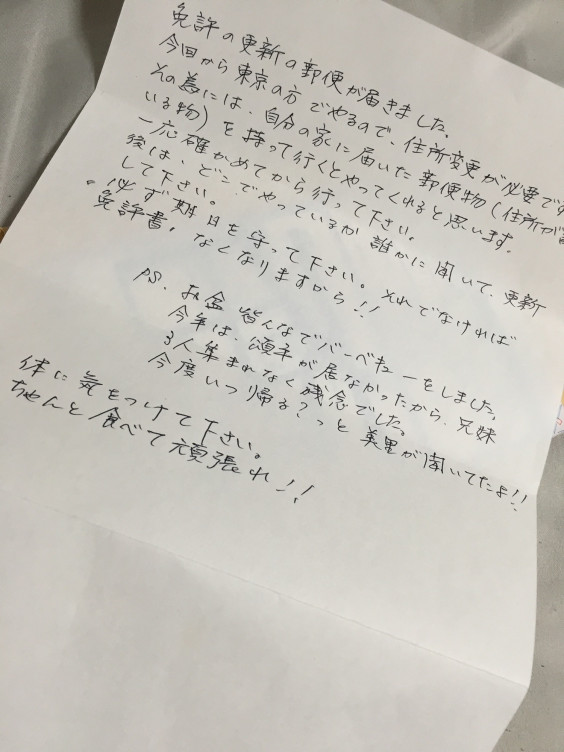 免許の更新の郵便が届きました。
今回から東京の方でやるので、住所変更が必要です
その為には、自分の家に届いた郵便物(住所が
いる物)を持って行くとやってくれると思います。
一応確かめてから行って下さい。
後は、どこでやっているか誰かに聞いて、更新
して下さい。
・必ず期日を守って下さい。それでなければ
免許書。なくなりますから!!
PS. お盆 皆んなでバーベキューをしました。
今年は、頌子が居なかったから、兄妹
3人集まれなく残念でした。
今度いつ帰る?っと 美里が聞いてたよ!!
体に気をつけて下さい。
ちゃんと食べて頑張れ!!